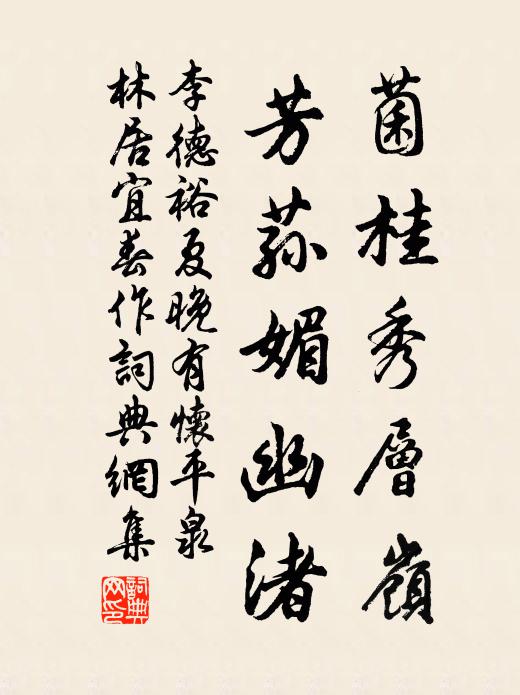 菌桂秀層嶺
芳蓀媚幽渚
李德裕夏晚有懷平泉
林居宜春作詞典網集
詞典網印